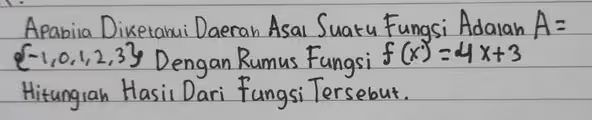 Apabila Diketahui Daerah Asal Suatu Fungsi Adalah A=
{-1,0,1,2,3} Dengan Rumus Fungsi f (x) = 4x+3
Hitunglah Hasil Dari Fungsi Tersebut.